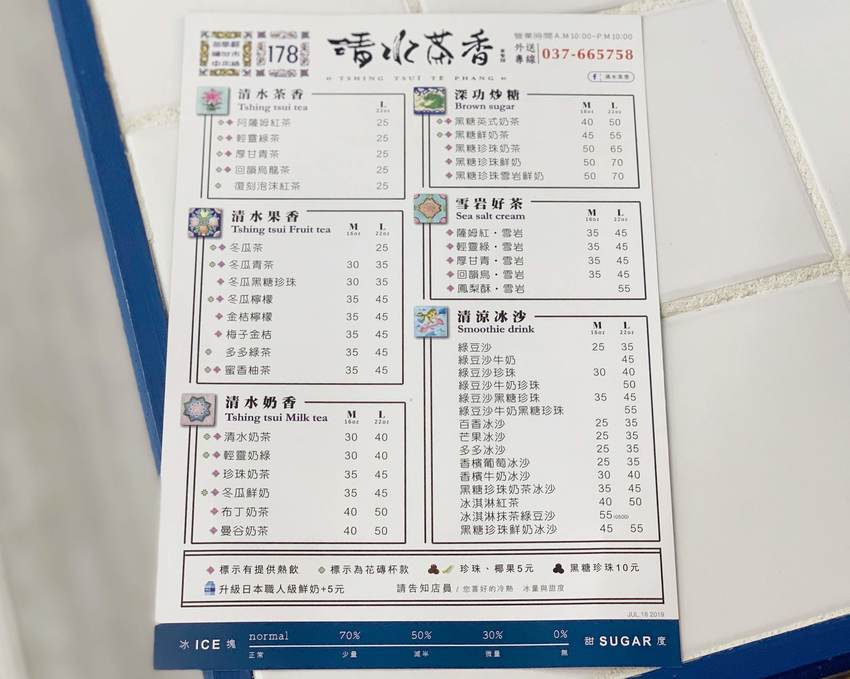 178
清水茶香
TSHING TSUI TÊ PHANG
營業時間 A.M 10:00~P.M 10:00
外送專線 037-665758
清水茶香
清水茶香
Tshing tsui tea
L
22oz
阿薩姆紅茶 25
輕靈綠茶 25
厚甘青茶 25
回韻烏龍茶 25
復刻泡沫紅茶 25
清水果香
Tshing tsui Fruit tea
M L
16oz 22oz
冬瓜茶 25
冬瓜青茶 30 35
冬瓜黑糖珍珠 30 35
冬瓜檸檬 35 45
金桔檸檬 35 45
梅子金桔 35 45
多多綠茶 35 45
蜜香柚茶 35 45
清水奶香
Tshing tsui Milk tea
M L
16oz 22oz
清水奶茶 30 40
輕靈奶綠 30 40
珍珠奶茶 35 45
冬瓜鮮奶 35 45
布丁奶茶 40 50
曼谷奶茶 40 50
深功炒糖
Brown sugar
M L
16oz 22oz
黑糖英式奶茶 40 50
黑糖鮮奶茶 45 55
黑糖珍珠奶茶 50 65
黑糖珍珠鮮奶 50 70
黑糖珍珠雪岩鮮奶 50 70
雪岩好茶
Sea salt cream
M L
16oz 22oz
薩姆紅・雪岩 35 45
輕靈綠・雪岩 35 45
厚甘青・雪岩 35 45
回韻烏・雪岩 35 45
鳳梨酥・雪岩 55
清涼冰沙
Smoothie drink
M L
16oz 22oz
綠豆沙 25 35
綠豆沙牛奶 45
綠豆沙珍珠 30 40
綠豆沙牛奶珍珠 50
綠豆沙黑糖珍珠 35 45
綠豆沙牛奶黑糖珍珠 55
百香冰沙 25 35
芒果冰沙 25 35
多多冰沙 25 35
香檳葡萄冰沙 25 35
香檳牛奶冰沙 30 40
黑糖珍珠奶茶冰沙 35 45
冰淇淋紅茶 40 50
冰淇淋抹茶綠豆沙 55
黑糖珍珠鮮奶冰沙 45 55
標示有提供熱飲 標示為花磚杯款 珍珠、椰果5元 黑糖珍珠10元
升級日本職人級鮮奶+5元 請告知店員 / 您喜好的冷熱 冰量與甜度
JUL.16 2019
冰 ICE 塊 normal 70% 50% 30% 0% 甜 SUGAR 度
正常 少量 減半 微量 無